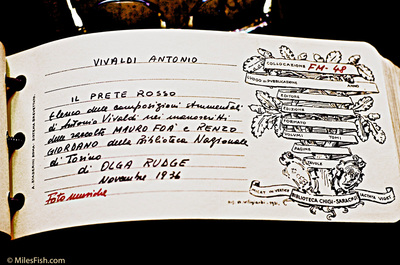 VIVALDI ANTONIO
IL PRETE ROSSO
Elenco delle composizioni strumentali
di Antonio Vivaldi nei manoscritti
delle raccolte MAURO FOÀ e RENZO
GIORDANO della Biblioteca Nazionale
di Torino
di OLGA RUDGE
Novembre 1936
Fotomusiche
COLLOCAZIONE FM-48
LUOGO DI PUBBLICAZIONE
ANNO
EDITORE
EDIZIONE
FORMATO
VOLUMI TOMI
PAGINE
TAVOLE
MICAT IN VERTICE
BIBLIOTECA CHIGI-SARACINI
© MilesFish.com